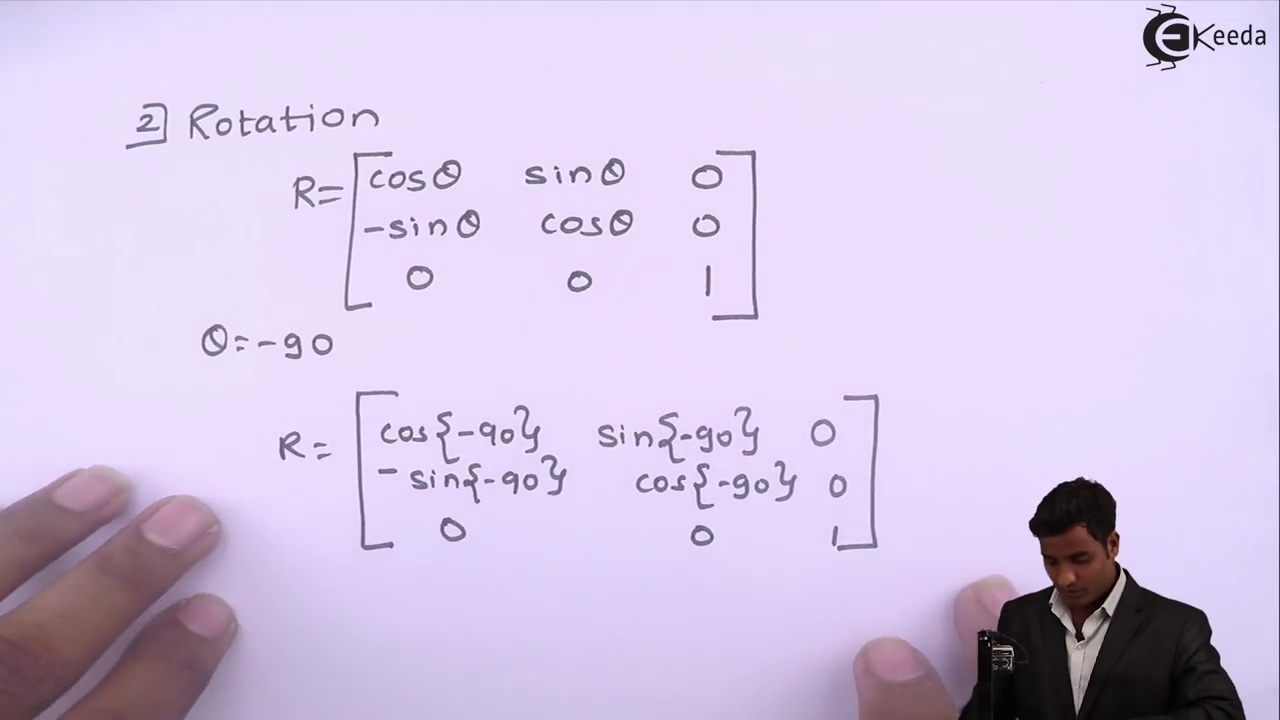 EKeeda
2] Rotation
R= [cosθ sinθ 0
-sinθ cosθ 0
0 0 1]
θ=-90
R= [cos{-90} sin{-90} 0
-sin{-90} cos{-90} 0
0 0 1]